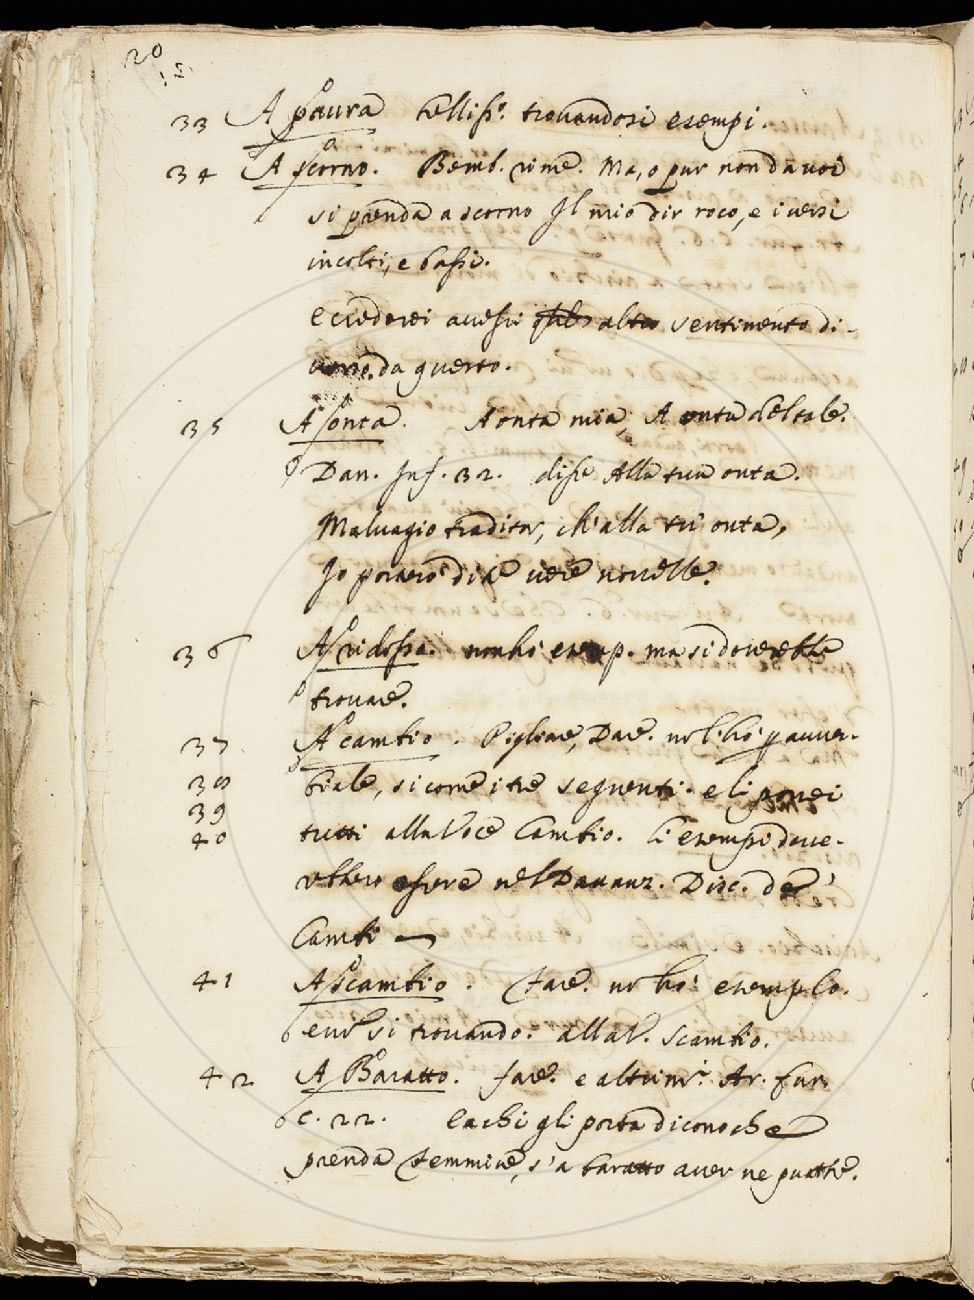 20
33 A paura bellisso. trovandosi esempi.
34 A scorno. Bemb. rime. Ma, o pur non da voi
si prenda a scorno Il mio dir roco, e i versi
incolti, e bassi.
e crederei avessi altro sentimento di-
verso. da questo.
35 A onta. A onta mia, A onta del tale.
Dan. Inf. 32. disse Alla tua onta.
Malvagio traditor, ch'alla tu' onta,
Io porterò di te vere novelle.
36 A ridosso. non ho esemp. ma si doverebbe
trovare.
37 A cambio. Pigliare, Dare. no l'ho p avver-
38 biale, si come i tre seguenti. e li porrei
39
40 tutti alla Voce Cambio. Li esempi dove-
rebbero essere nel Davanz. Disc. de'
Cambi
41 A scambio. Fare. nō ho esemplo.
e ur si trovando. alla V. Scambio.
42 A Baratto. fare. e altrimti. Ar. fur.
c. 22. E a chi gli porta dicono che
prenda Femmine, s'a baratto aver ne puote.